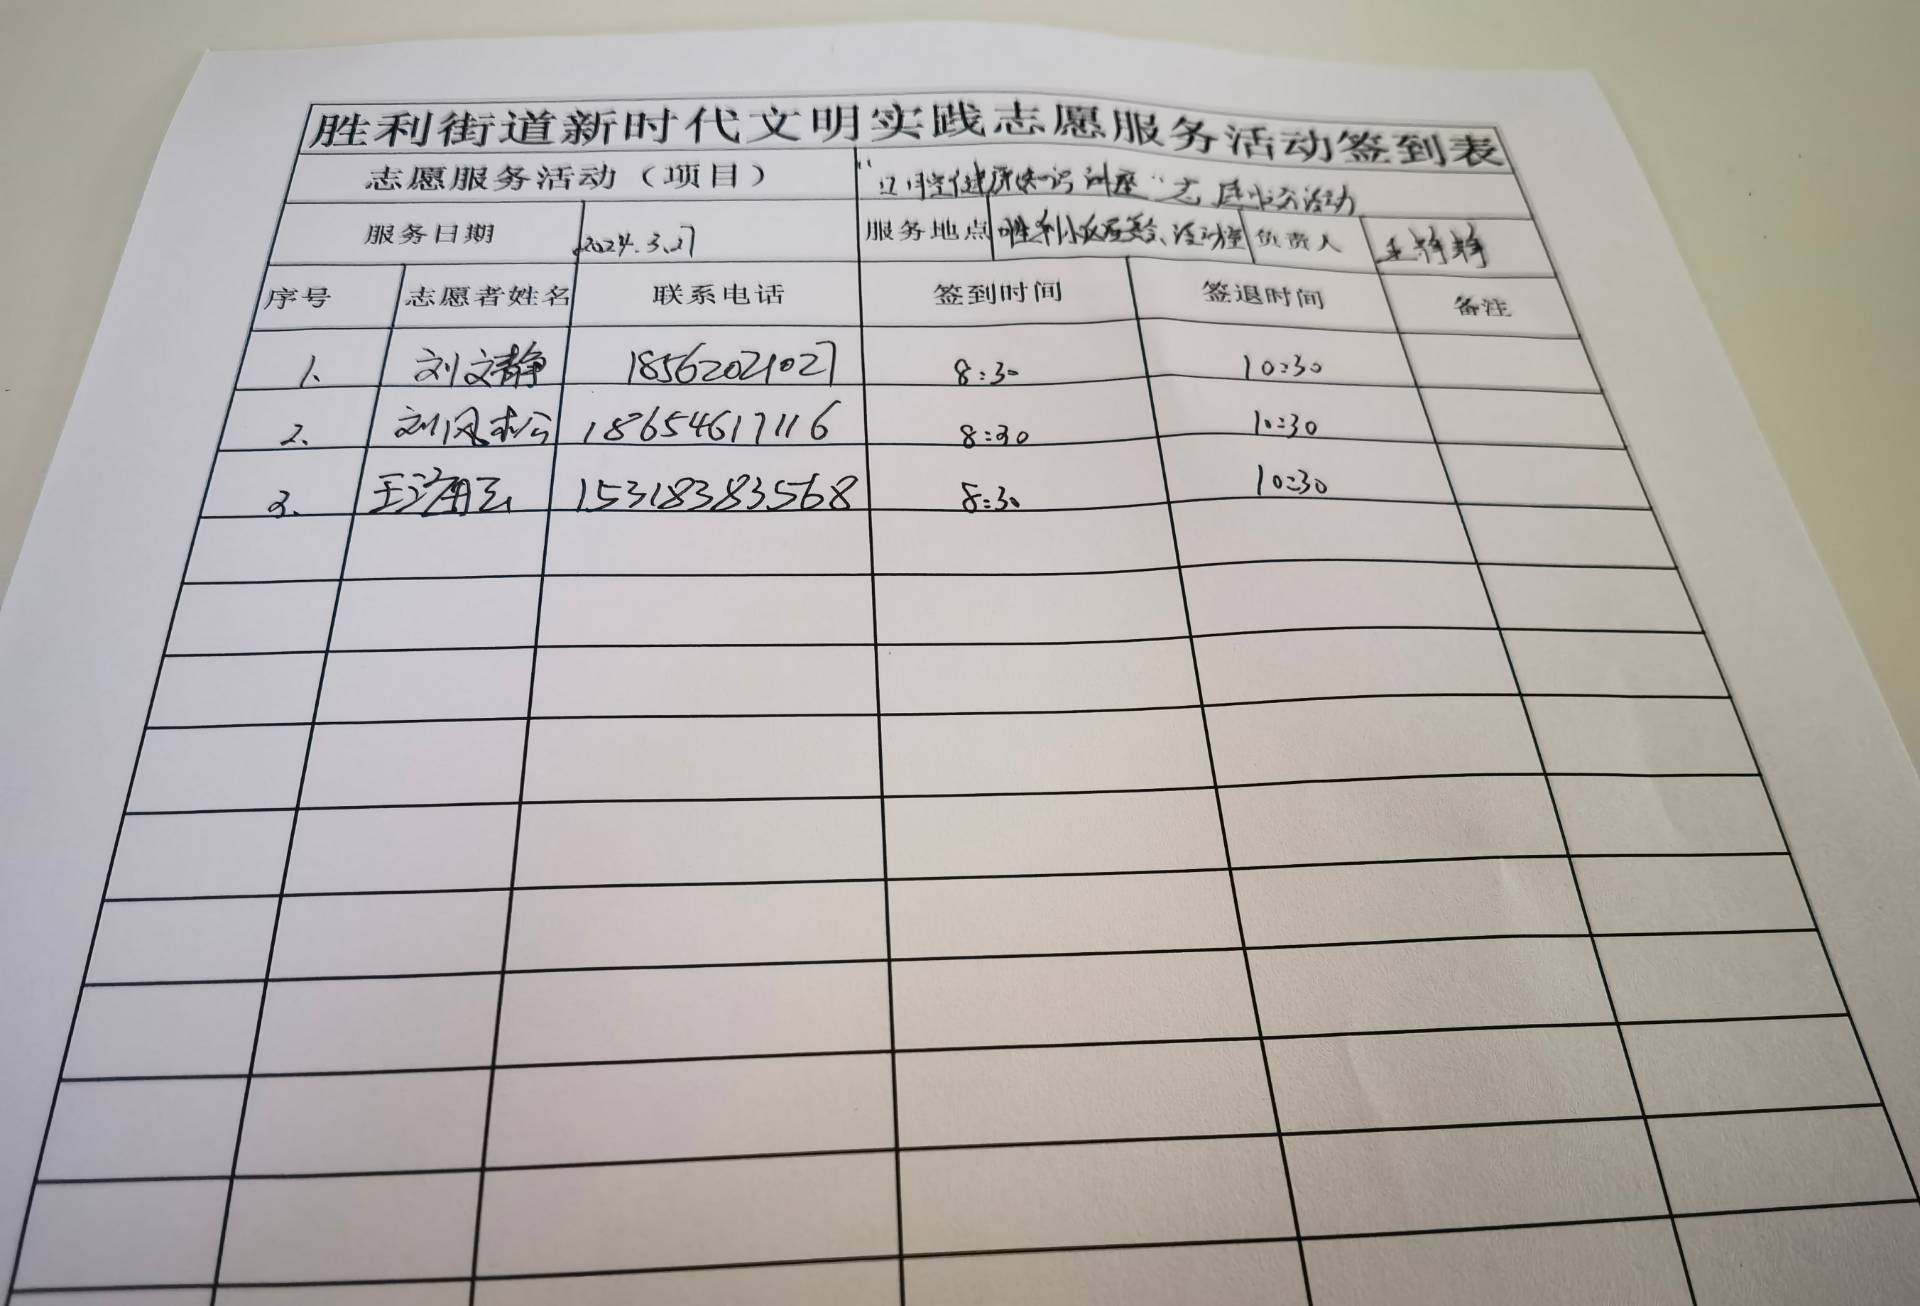 胜利街道新时代文明实践志愿服务活动签到表
志愿服务活动（项目） “口腔健康知识讲座”志愿服务活动
服务日期 2024.3.27 服务地点 胜利小区 活动室 负责人 王静静
序号 志愿者姓名 联系电话 签到时间 签退时间 备注
1、 刘文静 18562021027 8:30 10:30
2、 刘风松 18654617116 8:30 10:30
3、 王 15318383568 8:30 10:30